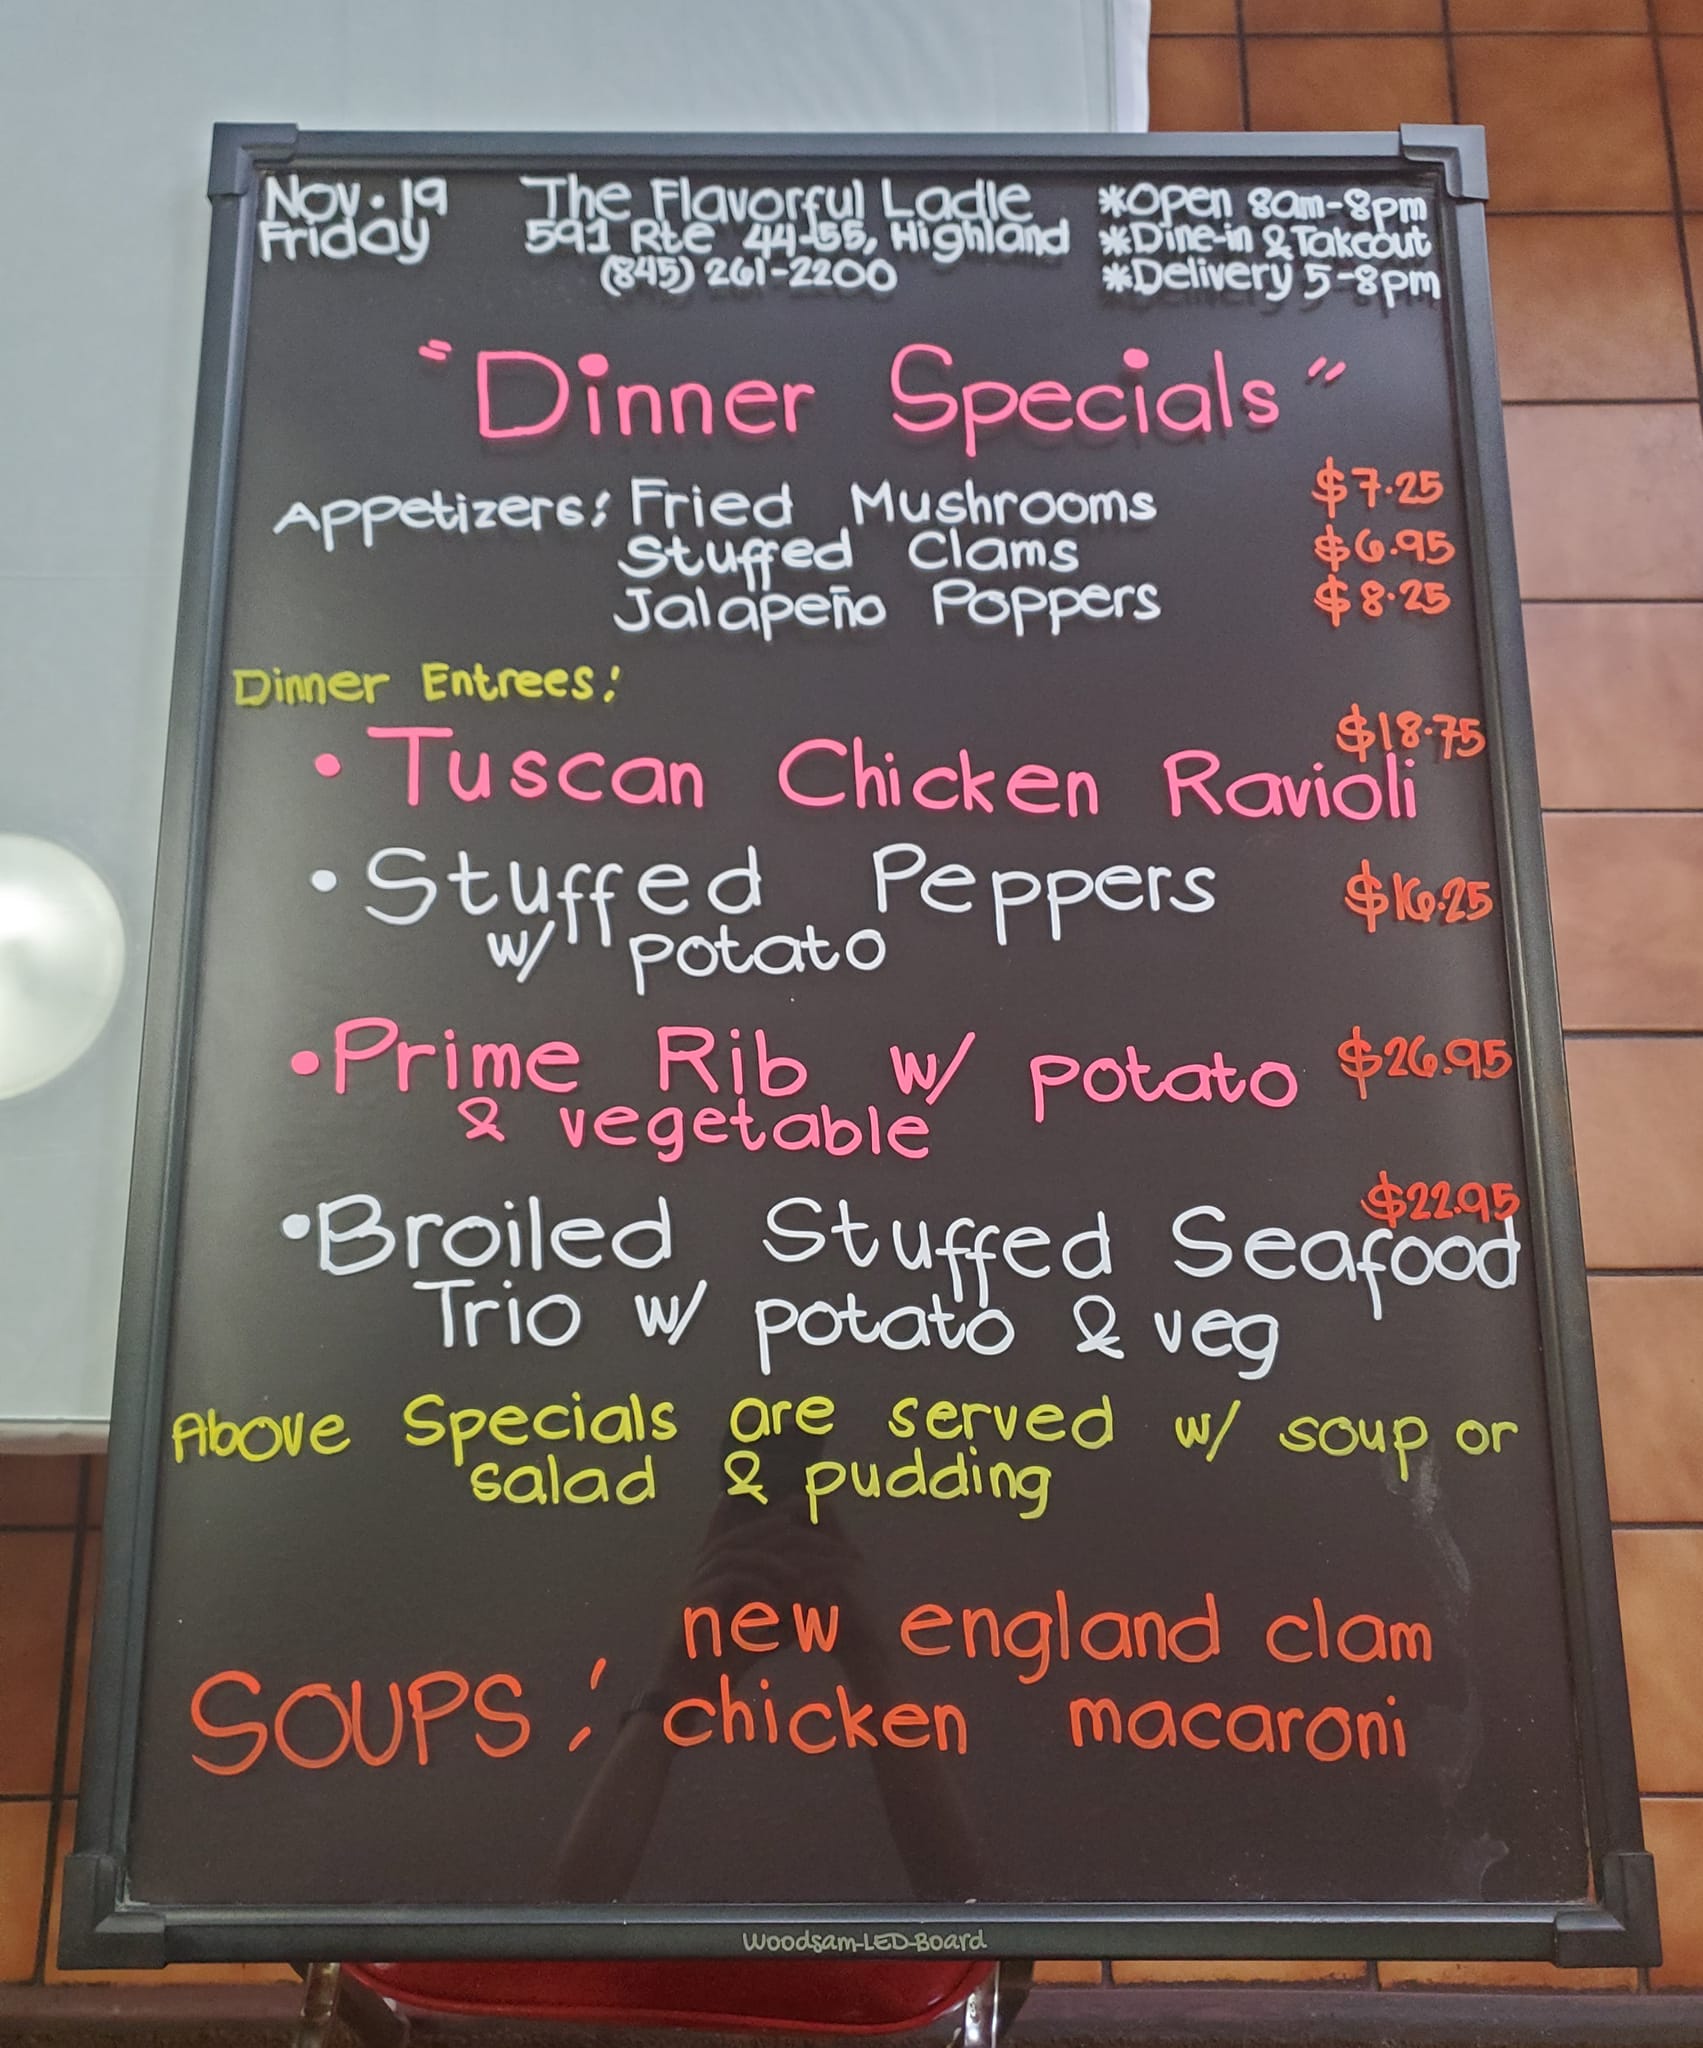 Nov. 19 The Flavorful Ladle *Open 8am-8pm
Friday 591 Rte 44-55, Highland *Dine-in & Takeout
(845) 261-2200 *Delivery 5-8pm
"Dinner Specials"
Appetizers: Fried Mushrooms $7.25
Stuffed Clams $6.95
Jalapeño Poppers $8.25
Dinner Entrees:
• Tuscan Chicken Ravioli $18.75
• Stuffed Peppers $16.25
w/ potato
• Prime Rib w/ potato $26.95
& vegetable
• Broiled Stuffed Seafood $22.95
Trio w/ potato & veg
Above Specials are served w/ soup or
salad & pudding
SOUPS: new england clam
chicken macaroni
Woodsam-LED-Board